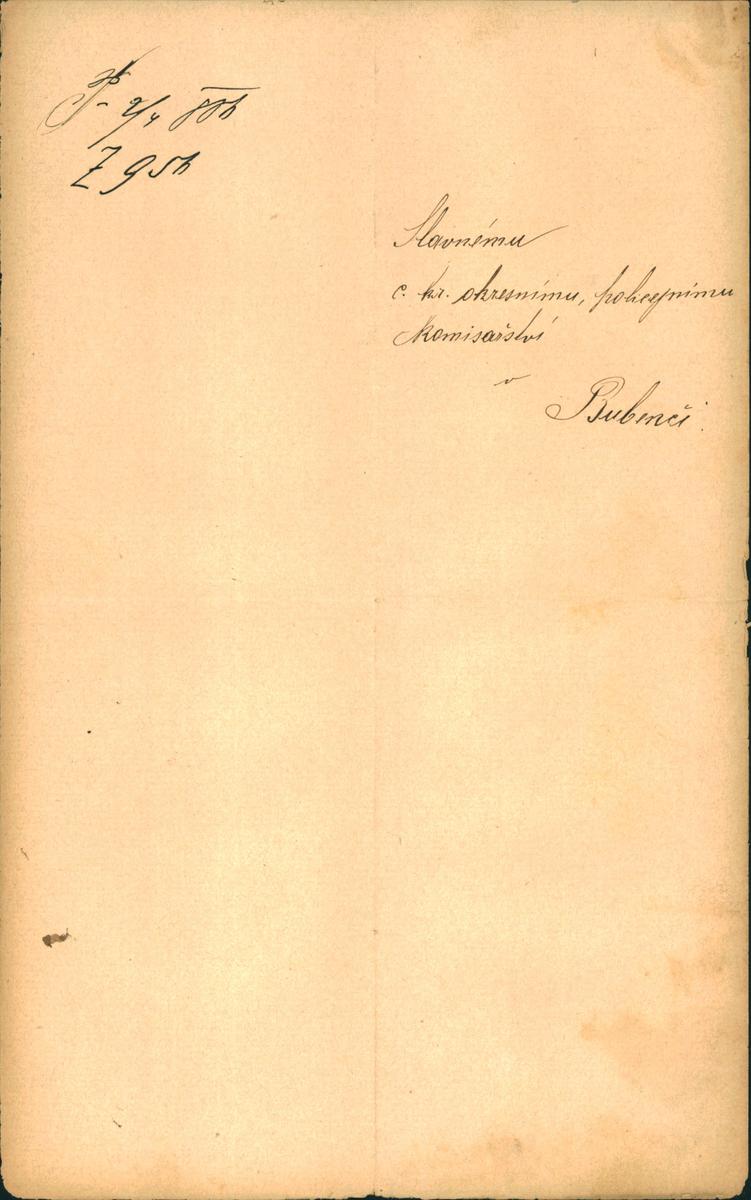 2/4
Z 95h
Slavnému
c. kr. okresnímu, policejnímu
komisařství
v
Bubenči.